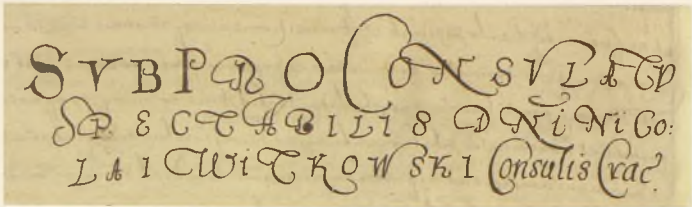 SVB PROCONSVLATV
SPECTABILIS DNI NICO:
LAI CWITKOWSKI Consulis Crac: